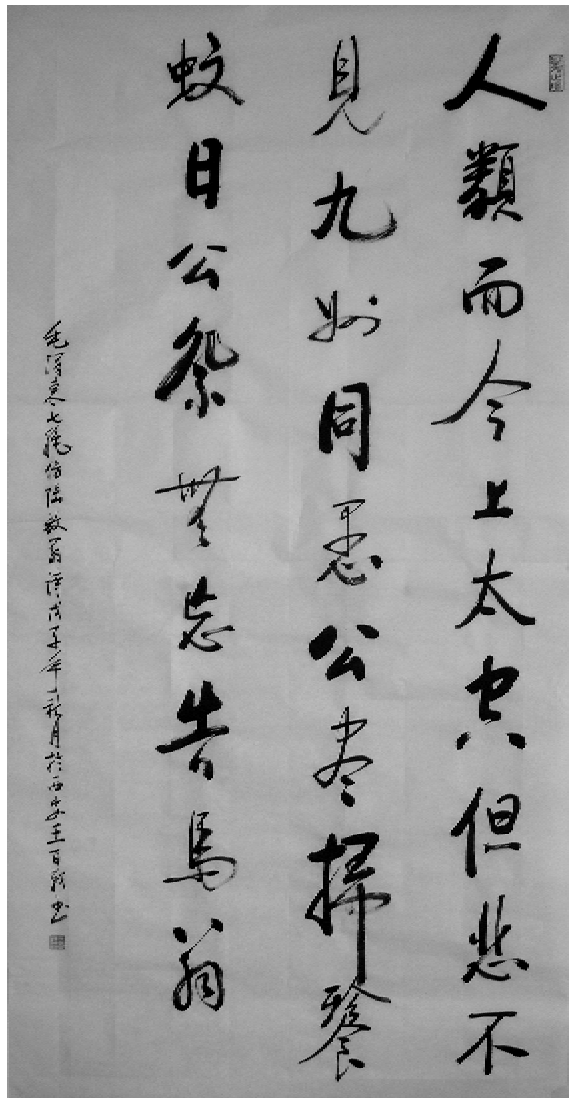 人類而今上太空但悲不
見九州同愚公盡掃餮
蚊日公祭無忘告馬翁
毛澤東七絕仿陸放翁詩戊子年秋月於西安王百書